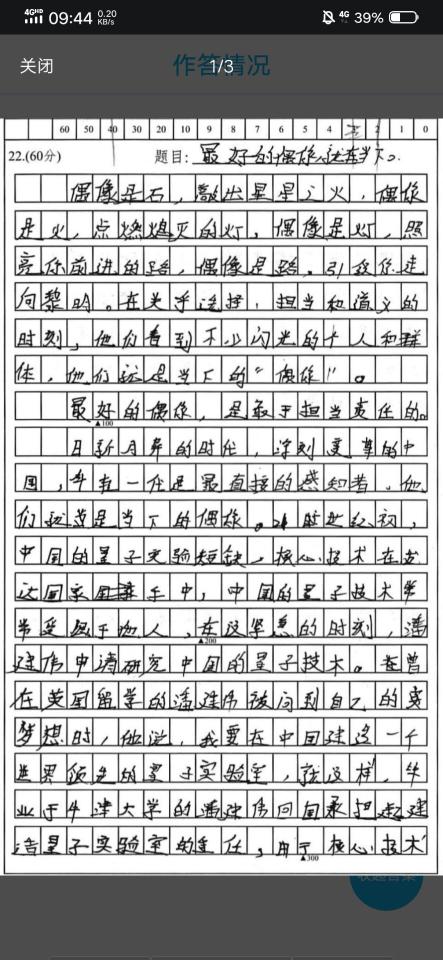 4GHD 09:44 0.20 KB/s 4G 39%
关闭 1/3 作答情况
60 50 40 30 20 10 9 8 7 6 5 4 3 2 1 0
22.(60分) 题目: 最好的偶像,就在当下。
偶像是石,敲出星星之火,偶像
是火,点燃熄灭的灯,偶像是灯,照
亮你前进的路,偶像是路,引致你走
向黎明。在关乎选择,担当和道义的
时刻,他们看到不少闪光的个人和群
体,他们就是当下的“偶像”。
最好的偶像,是敢于担当责任的。
▲100
日新月异的时代,深刻变革的中
国,年轻一任是最直接的感知者,他
们就是当下的偶像。21时世纪初,
中国的量子实验短缺,核心技术在发
达国家手中,中国的量子技术常
常受制于他人,在这紧急的时刻,潘
▲200
建伟申请研究中国的量子技术。在曾
在英国留学的潘建伟被问到自己的
梦想时,他说,我要在中国建造一个
世界领先的量子实验室,就这样,毕
业于牛津大学的潘建伟回国承担起建
造量子实验室的重任,用于核心技术
▲300